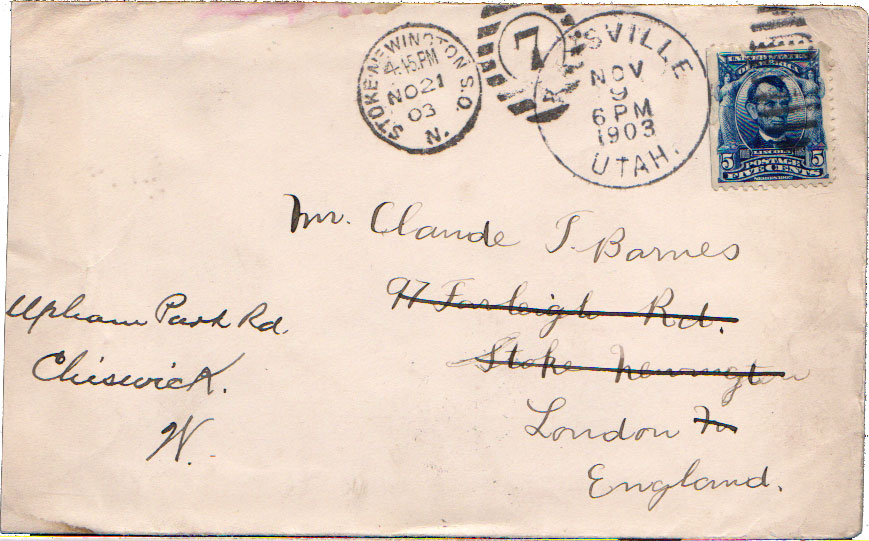 STOKE-NEWINGTON S.O.
4.45PM
NO21
03
N.
7
SVILLE
NOV
9
6 PM
1903
UTAH.
UNITED STATES
OF AMERICA
LINCOLN
5 POSTAGE 5
FIVE CENTS
Mr. Claude T. Barnes
97 Farleigh Rd.
Stoke Newington
London N.
England.
Upham Park Rd.
Chiswick.
W.